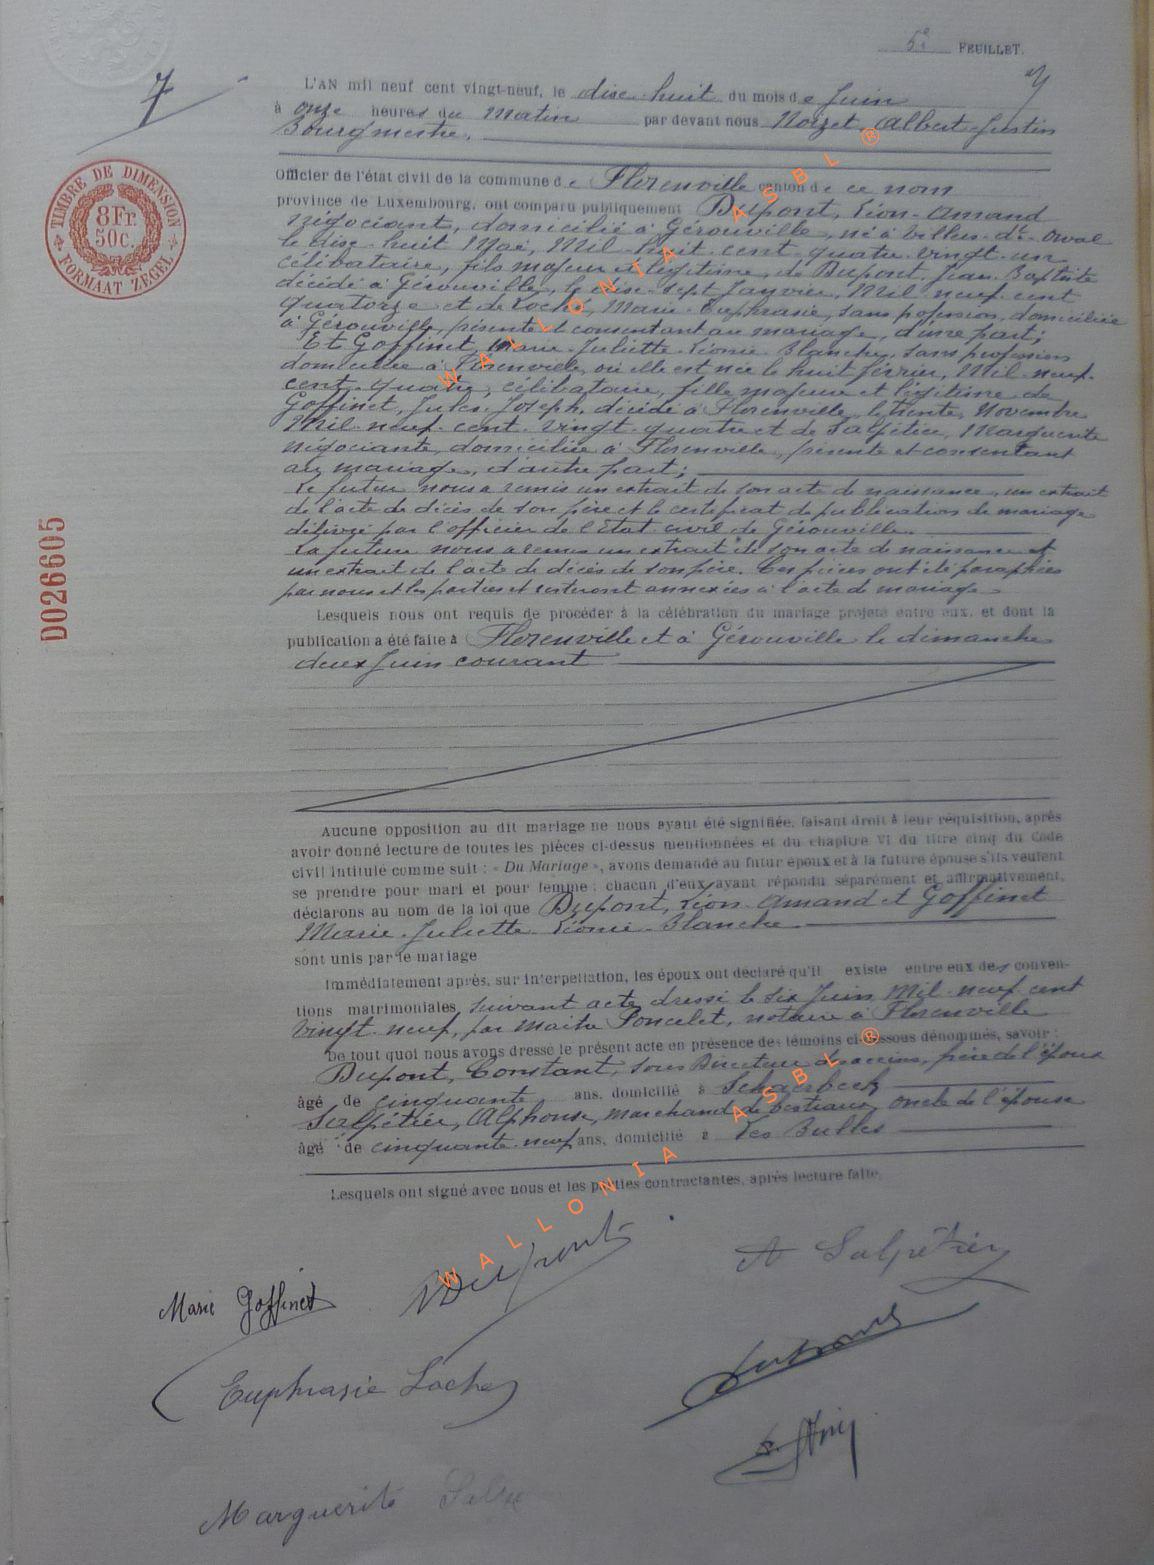 5e FEUILLET.
7
L'AN mil neuf cent vingt-neuf, le dix huit du mois de Juin
à onze heures du Matin par devant nous Noizet, Albert Justin
Bourgmestre.
Officier de l'état civil de la commune de Florenville canton de ce nom
province de Luxembourg, ont comparu publiquement Dupont, Léon-Amand
Négociant, domicilié à Gérouville, né à Villers-dt-Orval
le dix-huit Mai, Mil-huit-cent-quatre-vingt-un
célibataire, fils majeur et légitime de Dupont, Jean-Baptiste
décédé à Gérouville, le dix-sept Janvier, Mil-neuf-cent
quatorze et de Loché, Marie-Euphrasie, sans profession, domiciliée
à Gérouville, présente et consentant au mariage, d'une part;
Et Goffinet, Marie-Juliette-Léonie-Blanche, sans profession
domiciliée à Florenville, où elle est née le huit février, Mil-neuf-
cent-quatre, célibataire, fille majeure et légitime de
Goffinet, Jules-Joseph, décédé à Florenville, le trente, Novembre
Mil-neuf-cent-vingt-quatre et de Salpétier, Marguerite
négociante, domiciliée à Florenville, présente et consentant
au mariage, d'autre part;
Le futur nous a remis un extrait de son acte de naissance, un extrait
de l'acte de décès de son père et le certificat de publication de mariage
délivré par l'officier de l'état civil de Gérouville.
La future nous a remis un extrait de son acte de naissance et
un extrait de l'acte de décès de son père. Ces pièces ont été paraphées
par nous et les parties et resteront annexées à l'acte de mariage.
Lesquels nous ont requis de procéder à la célébration du mariage projeté entre eux, et dont la
publication a été faite à Florenville et à Gérouville le dimanche
deux Juin courant
Aucune opposition au dit mariage ne nous ayant été signifiée, faisant droit à leur réquisition, après
avoir donné lecture de toutes les pièces ci-dessus mentionnées et du chapitre VI du titre cinq du Code
civil intitulé comme suit : « Du Mariage », avons demandé au futur époux et à la future épouse s'ils veulent
se prendre pour mari et pour femme ; chacun d'eux ayant répondu séparément et affirmativement,
déclarons au nom de la loi que Dupont, Léon-Amand et Goffinet
Marie-Juliette-Léonie-Blanche
sont unis par le mariage
Immédiatement après, sur interpellation, les époux ont déclaré qu'il existe entre eux des conven-
tions matrimoniales suivant acte dressé le six Juin Mil-neuf cent
vingt-neuf, par Maître Poncelet, notaire à Florenville
De tout quoi nous avons dressé le présent acte en présence des témoins ci-dessous dénommés, savoir :
Dupont, Constant, Sous Directeur des accises, frère de l'époux
âgé de cinquante ans, domicilié à Schaerbeek
Salpétier, Alphonse, marchand de bestiaux, oncle de l'épouse
âgé de cinquante-neuf ans, domicilié à Les Bulles
Lesquels ont signé avec nous et les parties contractantes, après lecture faite.
Marie Goffinet
Dupont
A Salpétier
Euphrasie Loché
Marguerite
TIMBRE DE DIMENSION
8Fr.
50c.
FORMAAT ZEGEL
D026605
WALLONIA ASBL ®
WALLONIA ASBL ®